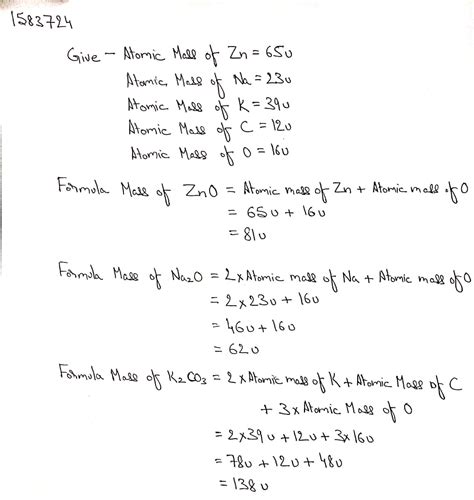 1583724
Give - Atomic Mass of Zn = 65u
Atomic Mass of Na = 23u
Atomic Mass of K = 39u
Atomic Mass of C = 12u
Atomic Mass of O = 16u
Formula Mass of ZnO = Atomic mass of Zn + Atomic mass of O
= 65u + 16u
= 81u
Formula Mass of Na₂O = 2 x Atomic mass of Na + Atomic mass of O
= 2 x 23u + 16u
= 46u + 16u
= 62u
Formula Mass of K₂CO₃ = 2 x Atomic mass of K + Atomic Mass of C
+ 3 x Atomic Mass of O
= 2 x 39u + 12u + 3 x 16u
= 78u + 12u + 48u
= 138u